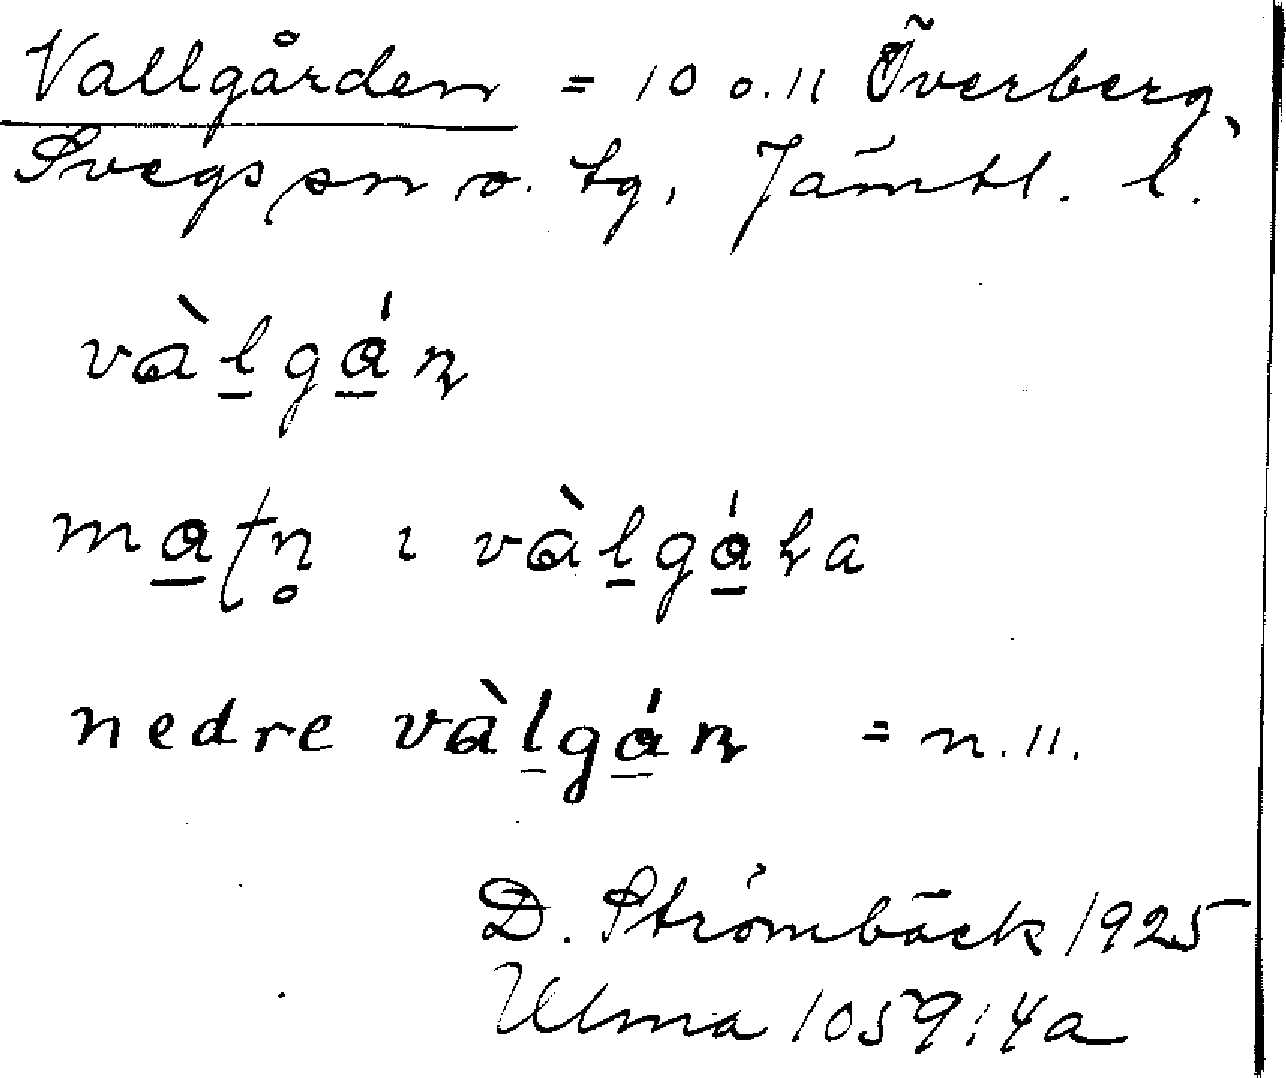 Vallgården = 10 o. 11 Överberg,
Svegs sn o. tg, Jämtl. l.
vàl̠gá̠ɳ
ma̠ʃtn̥ ı vàl̠gá̠ɽa
nedre vàl̠gá̠ɳ = n. 11.
D. Strömbäck 1925
Ulma 1059:4a